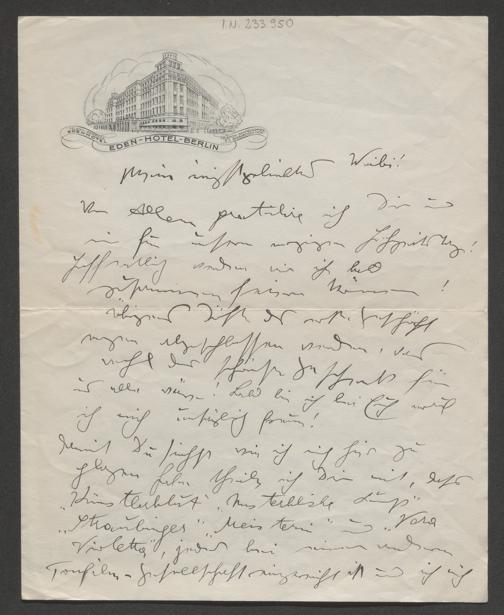 I.N. 233950
EDEN-HOTEL-BERLIN
Mein Weibi!
Vor Allem gratulire ich Dir u
mir für unsern morgigen Hochzeitstag!
Hoffentlich werden wir ihn bald
zusammen feiern können!
Übrigens dürfte das erste Geschäft
morgen abgeschlossen werden, das
wohl das schönste Geschenk für
uns alle wäre! Bald bin ich bei Euch worauf
ich mich unsäglich freue!
Damit Du siehst wie ich mich hier zu
plagen habe theile ich Dir mit, dass
„Künstlerblut", „Unsterbliche Lump"
„Straubinger" „Meisterin" u „Nora
Violetta", jedes bei einer anderen
Tonfilm-Gesellschaft eingereicht ist und ich mich